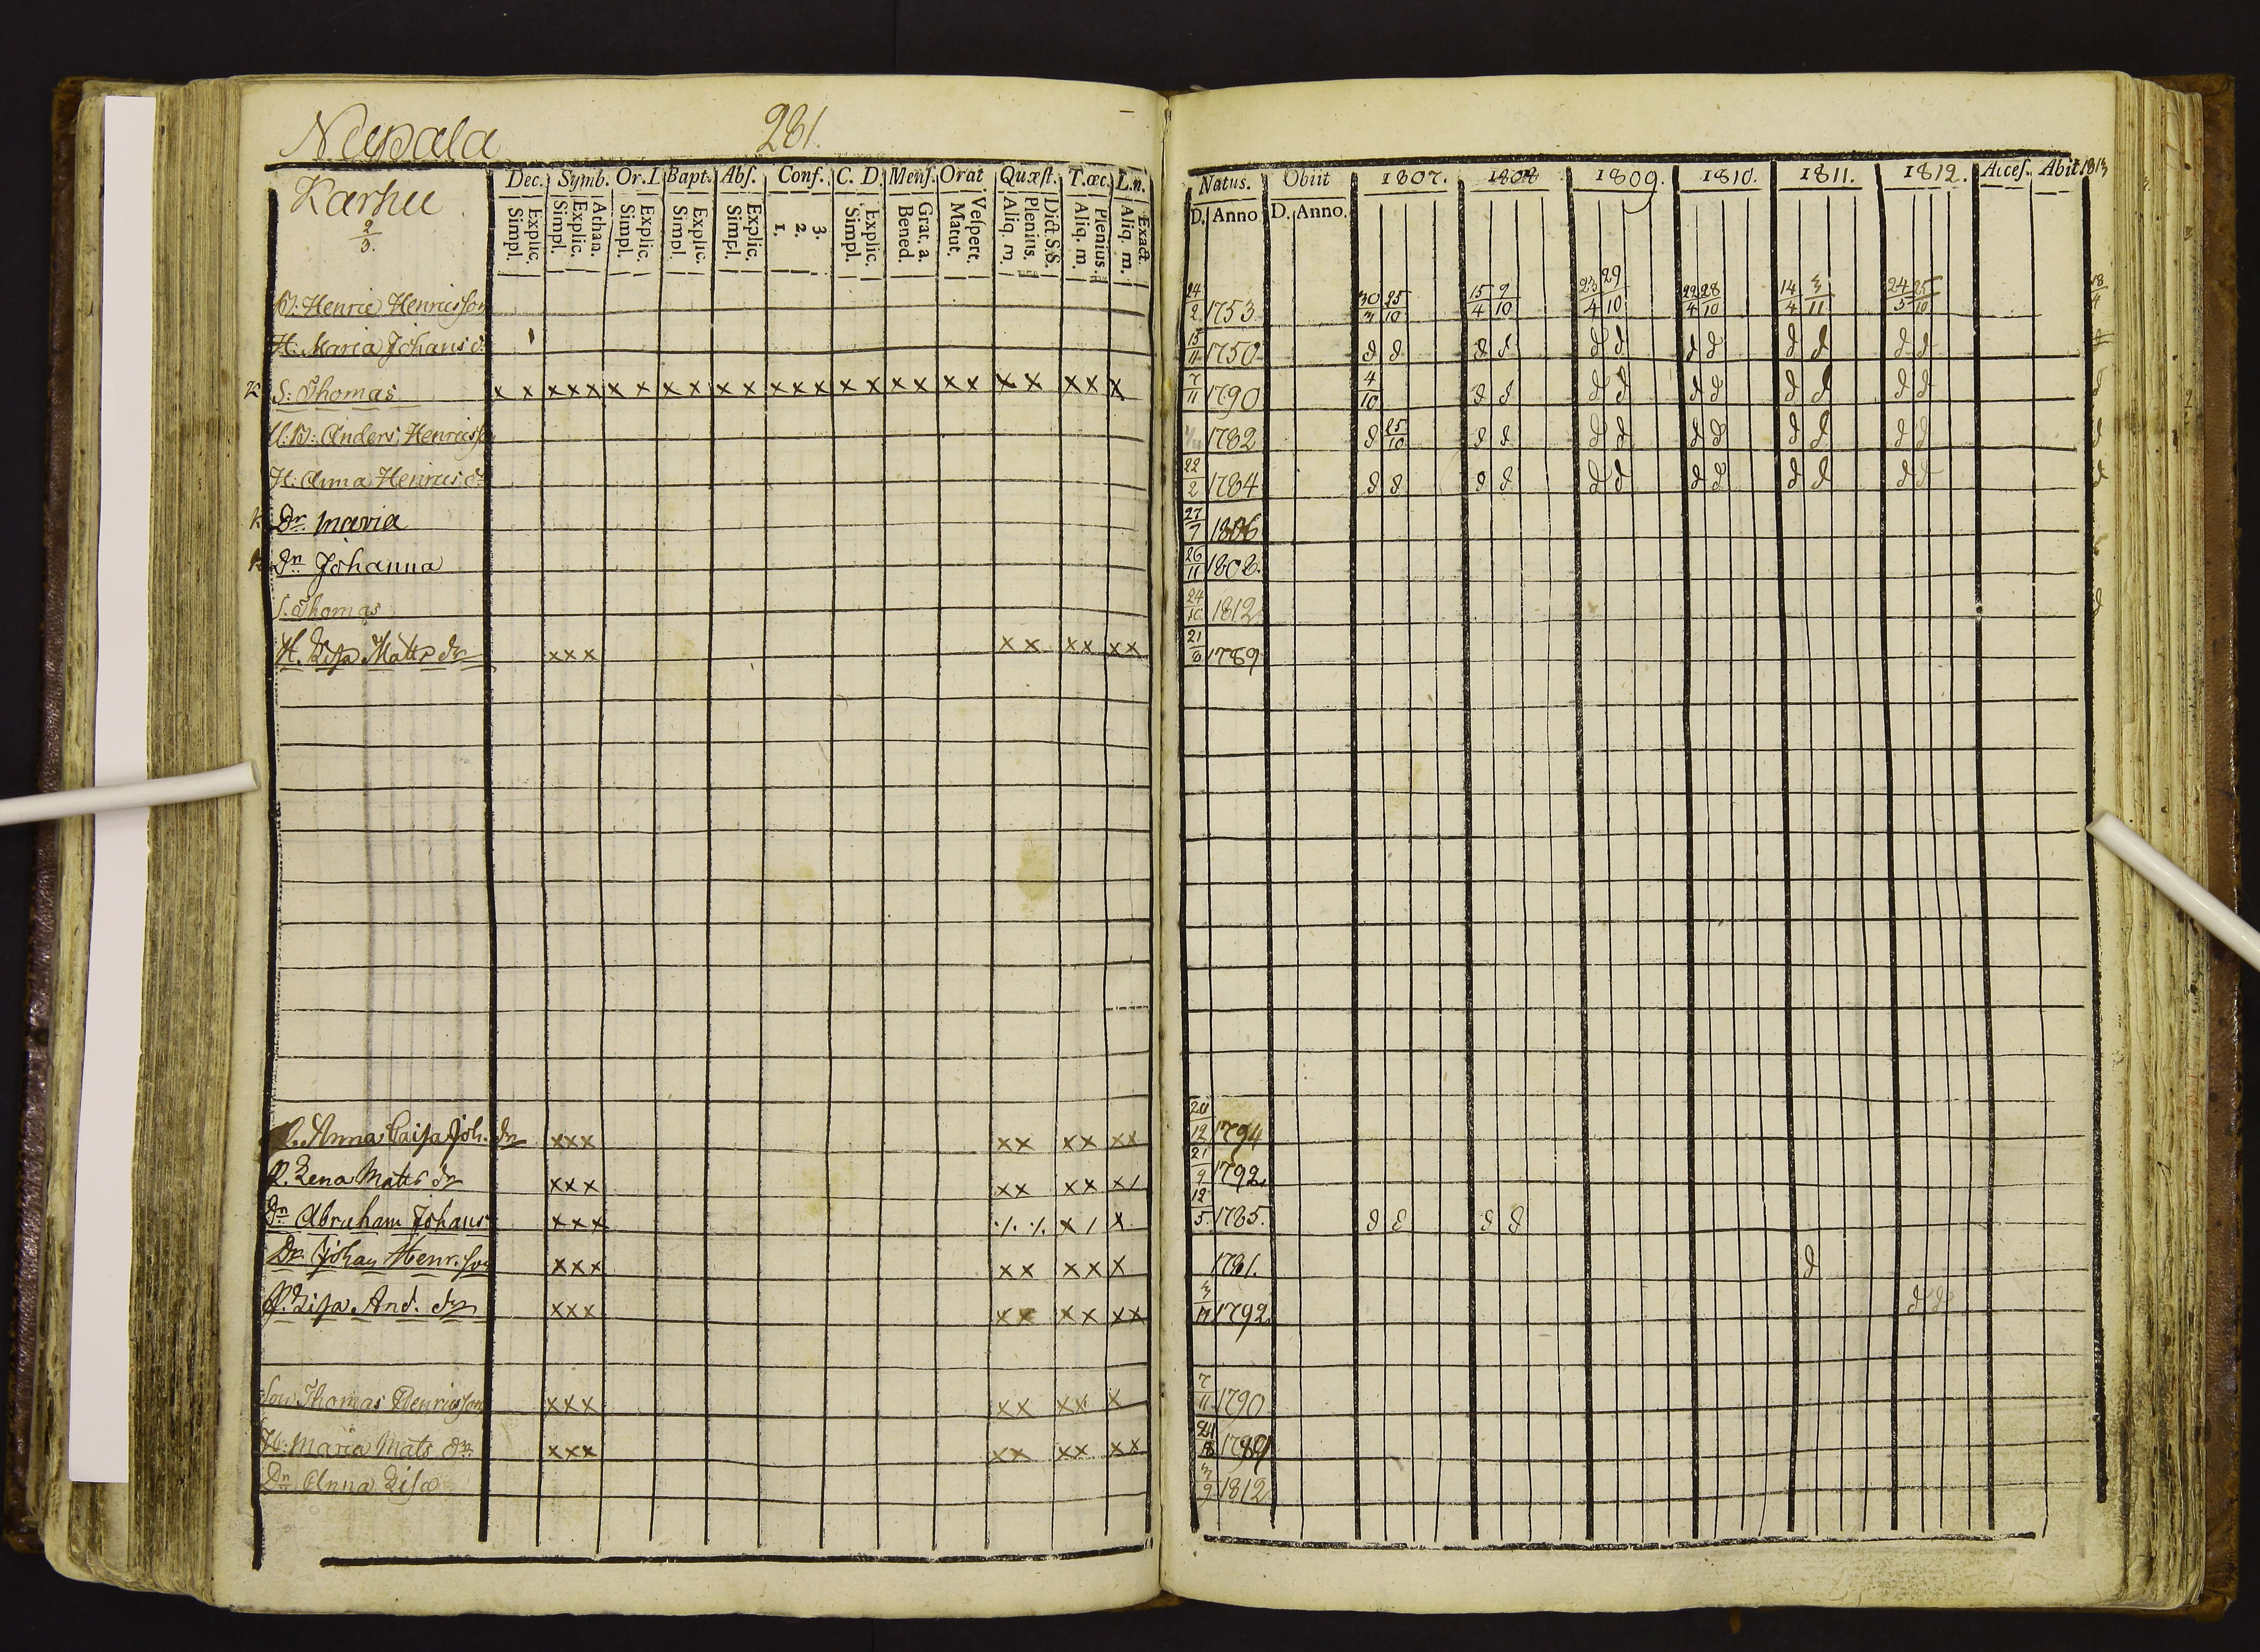 Nepala 281.
Karhu
2/3.
Dec. Symb. Or. I. Bapt. Abſ. Conf. C. D. Menſ. Orat Quæſt. T.œc. L.n.
Explic. Simpl. Athan. Explic. Simpl. Explic. Simpl. Explic. Simpl. Explic. Simpl. 3. 2. 1. Explic. Simpl. Grat. a. Bened. Veſpert. Matut. Dict. S.S. Plenius. Aliq. m. Plenius. Aliq. m. Exact. Aliq. m.
Natus. Obiit 1807. 1808 1809. 1810. 1811. 1812. Acceſ. Abiit 1813
D. Anno D. Anno.
B: Henric Henricsson 24/2 1753 30/3 25/10 15/4 9/10 23/4 29/10 22/4 28/10 14/4 3/11 24/5 25/10 18/4
H: Maria Johans dr 15/11 1750 d d d d d d d d d d d d
K S: Thomas x x x x x x x x x x x x x x x x x x x x x x x x x x 7/11 1790 4/10 d d d d d d d d d d d
Anders Henricss 1782 d 25/10 d d d d d d d d d d d
H: Anna Henrics dr 22/2 1784 d d d d d d d d d d d d d
K Dr Maria 27/7 1806
K Dn Johanna 26/11 1808.
S. Thomas 24/10 1812 d
H. Lisa Matts dr x x x x x x x x x 21/8 1789
Anna Caisa Joh. dr x x x x x x x x x 20/12 1794
P. Lena Matts dr x x x x x x x x / 21/9 1792
Dn Abraham Johans x x x ./. /. x / x 12/5. 1785. d d d d
Dr. Johan Henr. son x x x x x x x x 1781. d
P. Lisa And. dr x x x x x x x x x 1792. d d
Thomas Henricsson x x x x x x x x 7/11 1790
H: Maria Mats dr x x x x x x x x x 21/8 1789
Dn Anna Lisa 3/9 1812